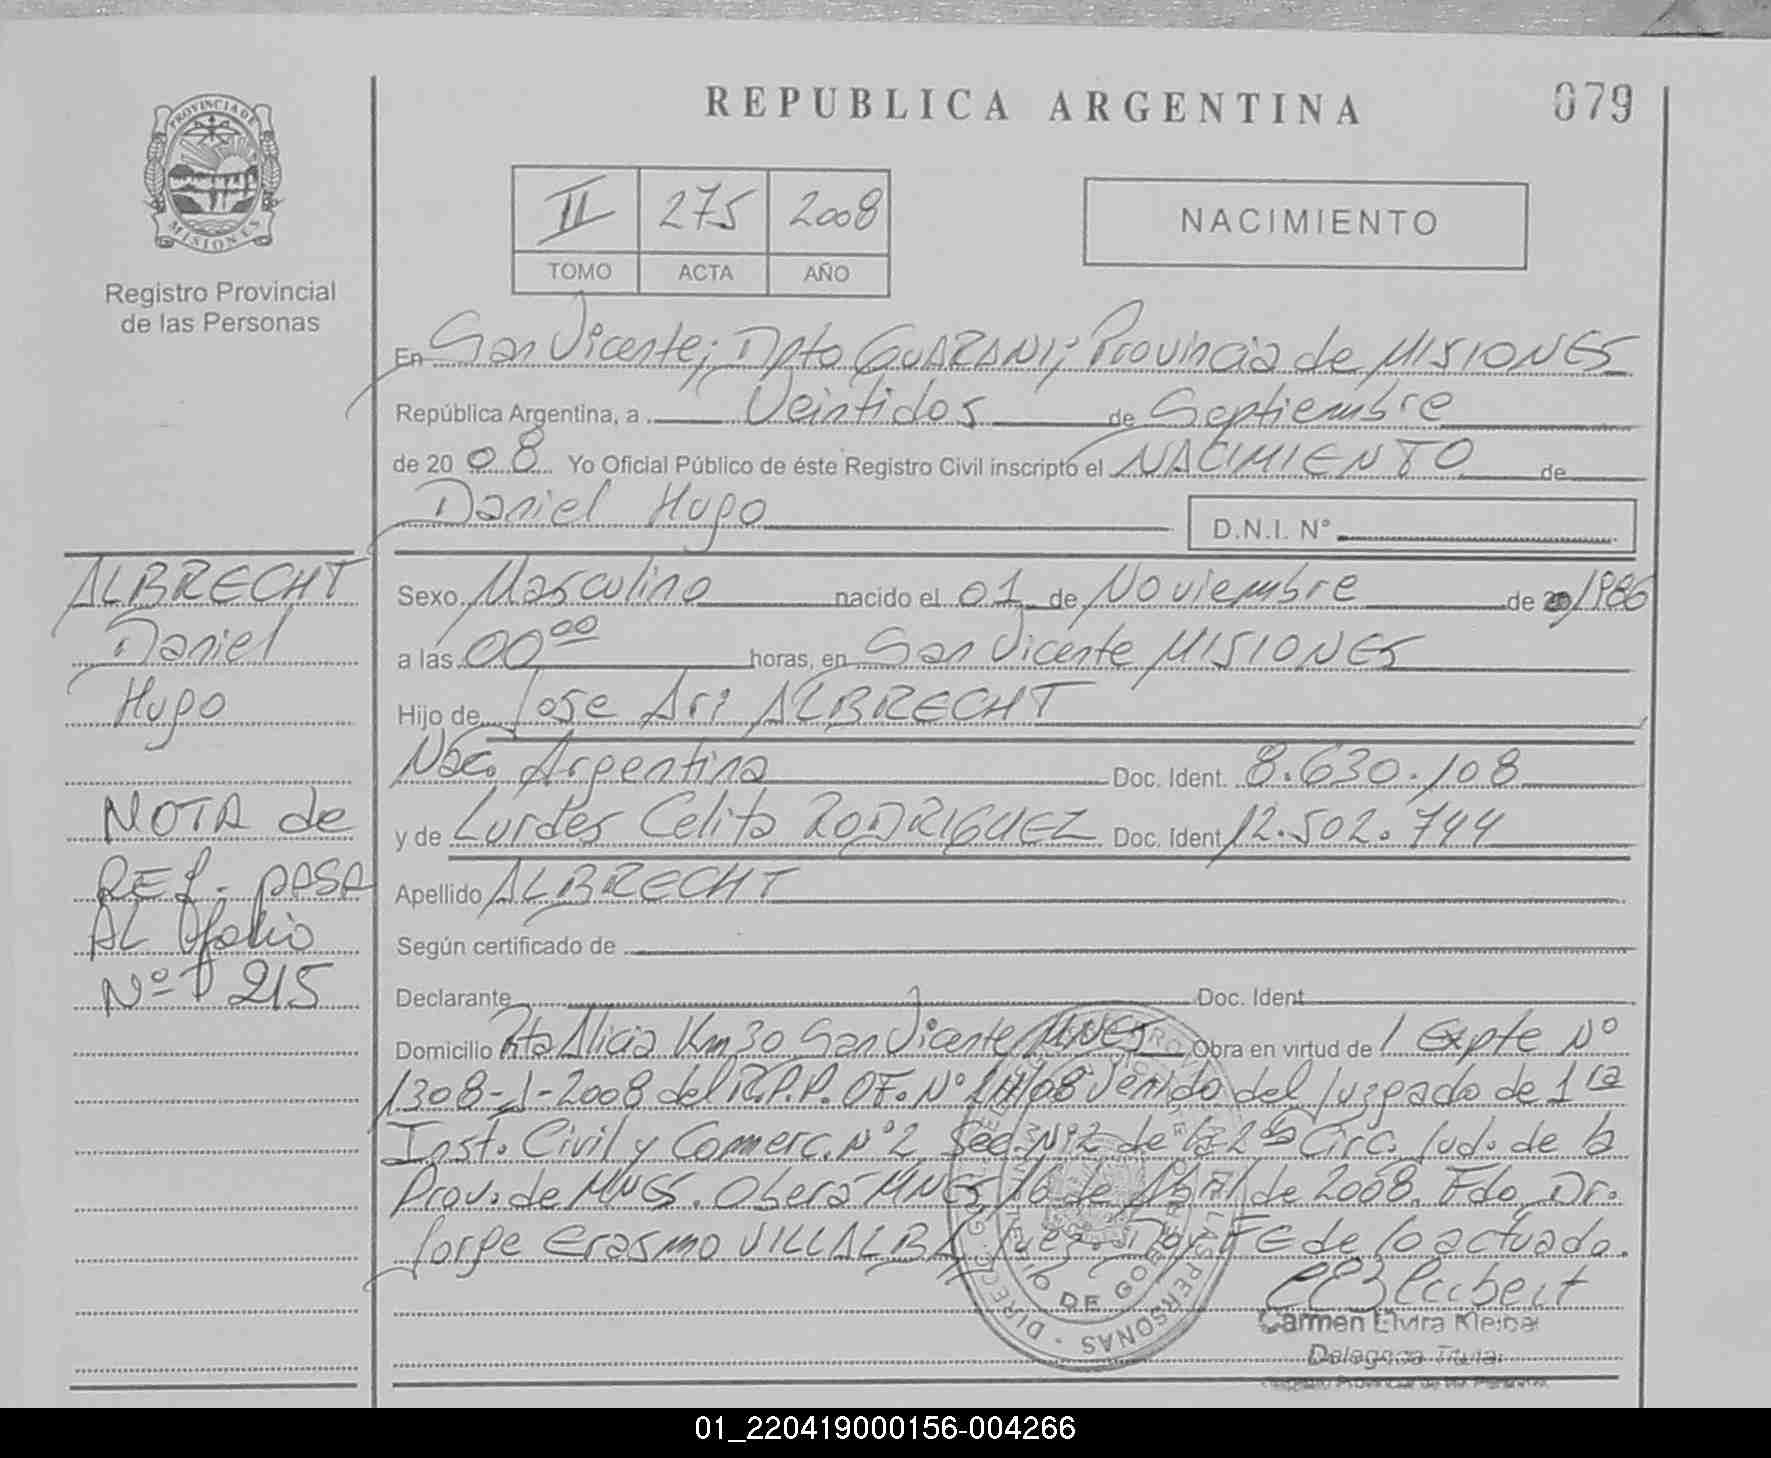 REPUBLICA ARGENTINA
079
PROVINCIA DE
MISIONES
Registro Provincial
de las Personas
II 275 2008
TOMO ACTA AÑO
NACIMIENTO
En San Vicente; Dpto GUARANI; Provincia de MISIONES
República Argentina, a Veintidos de Septiembre
de 20 08 Yo Oficial Público de éste Registro Civil inscripto el NACIMIENTO de
Daniel Hugo D.N.I. N°
ALBRECHT
Daniel
Hugo
NOTA de
REF. PASA
AL folio
Nº 215
Sexo Masculino nacido el 01 de Noviembre de 1986
a las 00 00 horas, en San Vicente MISIONES
Hijo de Jose Ari ALBRECHT
Nac. Argentina Doc. Ident. 8.630.108
y de Lurdes Celita RODRIGUEZ Doc. Ident 12.502.744
Apellido ALBRECHT
Según certificado de
Declarante Doc. Ident
Domicilio Pta Alicia Km 30 San Vicente MNES Obra en virtud de / Expte Nº
1308-J-2008 del R.P.P. OF. Nº /08 Venido del Juzgado de 1ra
Inst. Civil y Comerc. Nº 2 Sec. Nº 2 de la 2da Circ. Jud. de la
Prov. de MNES. Oberá MNES, 16 de Abril de 2008. Fdo. Dr.
Jorge Erasmo VILLALBA Juez. Doy FE de lo actuado.
Carmen Elvira
Delegada Titular
Registro Provincial de las Personas
01_220419000156-004266